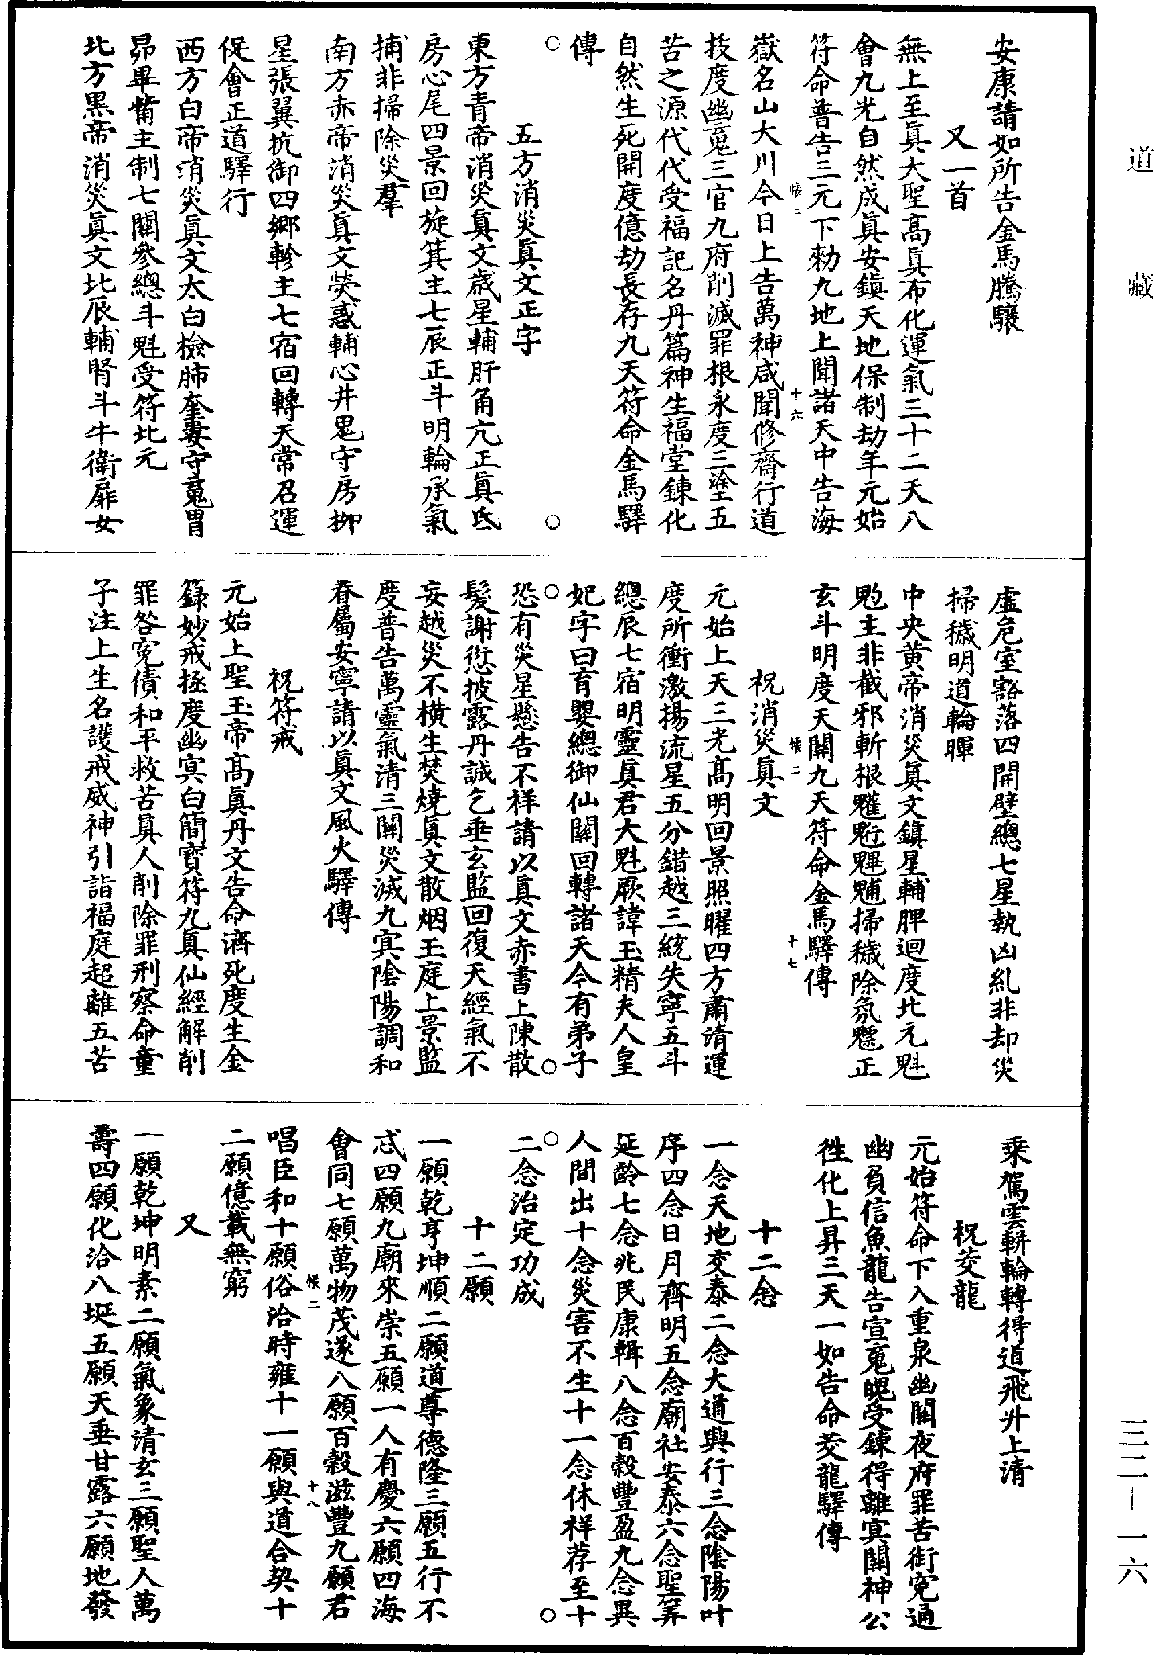 道藏
三二—一六
安康請如所告金馬騰驤
又一首
無上至眞大聖高眞布化運氣三十二天八
會九光自然成眞安鎮天地保制劫年元始
符命普告三元下勑九地上聞諸天中告海
帳二
十六
嶽名山大川今日上告萬神咸聞修齋行道
拔度幽䰟三官九府削滅罪根永度三塗五
苦之源代代受福記名丹篇神生福堂鍊化
自然生死開度億劫長存九天符命金馬驛
傳
○○
五方消災眞文正字
東方青帝消災眞文歲星輔肝角亢正眞氐
房心尾四景回旋箕主七辰正斗明輪承氣
捕非掃除災羣
南方赤帝消災眞文熒惑輔心井鬼守房柳
星張翼抗御四鄉軫主七宿回轉天常召運
促會正道驛行
西方白帝消災眞文太白檢肺奎婁守䰟胃
昴畢觜主制七關參總斗魁受符北元
北方黑帝消災眞文北辰輔腎斗牛衛扉女
虛危室豁落四開壁總七星執凶糺非却災
掃穢明道輪暉
中央黃帝消災眞文鎮星輔脾迴度北元魁
魁主非截邪斬根魒䰢魓魖掃穢除氛魒正
玄斗明度天關九天符命金馬驛傳
帳二
十七
祝消災眞文
元始上天三光高明回景照曜四方肅清運
度所衝激揚流星五分錯越三統失寧五斗
總辰七宿明靈眞君大魁厥諱玉精夫人皇
妃字曰育嬰總御仙關回轉諸天今有弟子
○○
恐有災星懸告不祥請以眞文赤書上陳散
髮謝愆披露丹誠乞垂玄監回復天經氣不
妄越災不橫生焚燒眞文散烟玉庭上景監
度普告萬靈氣清三關災滅九㝠陰陽調和
眷屬安寧請以眞文風火驛傳
祝符戒
元始上聖玉帝高眞丹文告命濟死度生金
籙妙戒拯度幽㝠白簡寶符九眞仙經解削
罪咎寃債和平救苦眞人削除罪刑察命童
子注上生名護戒威神引詣福庭超離五苦
乘駕雲軿輪轉得道飛升上清
祝茭龍
元始符命下入重泉幽關夜府罪苦銜寃通
幽負信魚龍告宣䰟魄受鍊得離㝠關神公
徃化上昇三天一如告命茭龍驛傳
十二念
一念天地交泰二念大道興行三念陰陽叶
序四念日月齊明五念廟社安泰六念聖筭
延齡七念兆民康輯八念百穀豐盈九念異
人間出十念災害不生十一念休祥荐至十
○○
二念治定功成
十二願
一願乾亨坤順二願道尊德隆三願五行不
忒四願九廟來崇五願一人有慶六願四海
會同七願萬物茂遂八願百穀滋豐九願君
帳二
十八
唱臣和十願俗洽時雍十一願與道合契十
二願億載無窮
又
一願乾坤明素二願氣象清玄三願聖人萬
壽四願化洽八埏五願天垂甘露六願地發